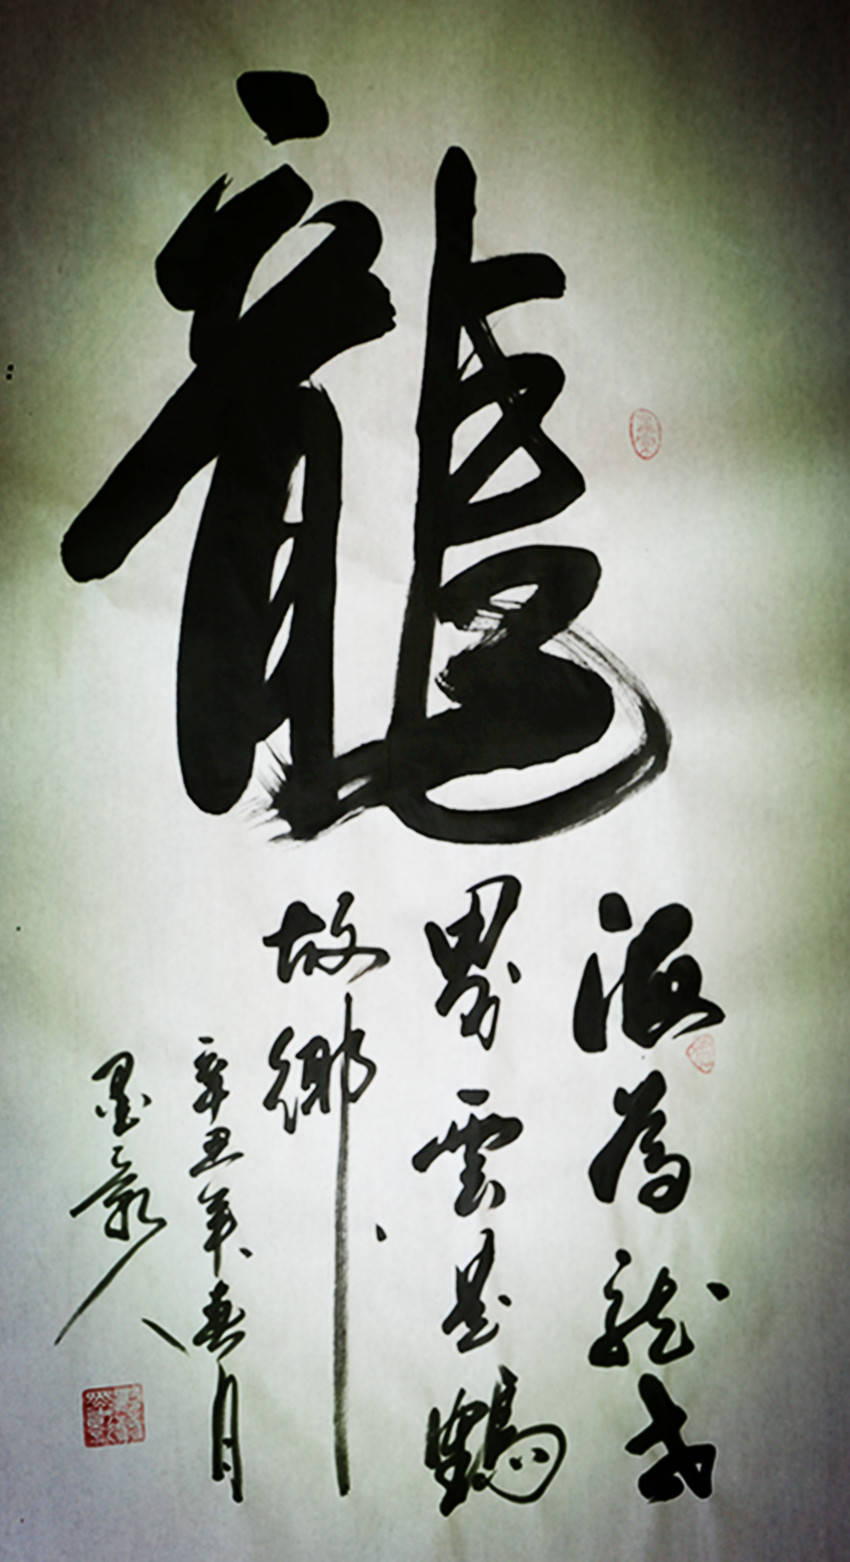 龍
海為龍世
界雲是鶴
故鄉
辛丑年春月